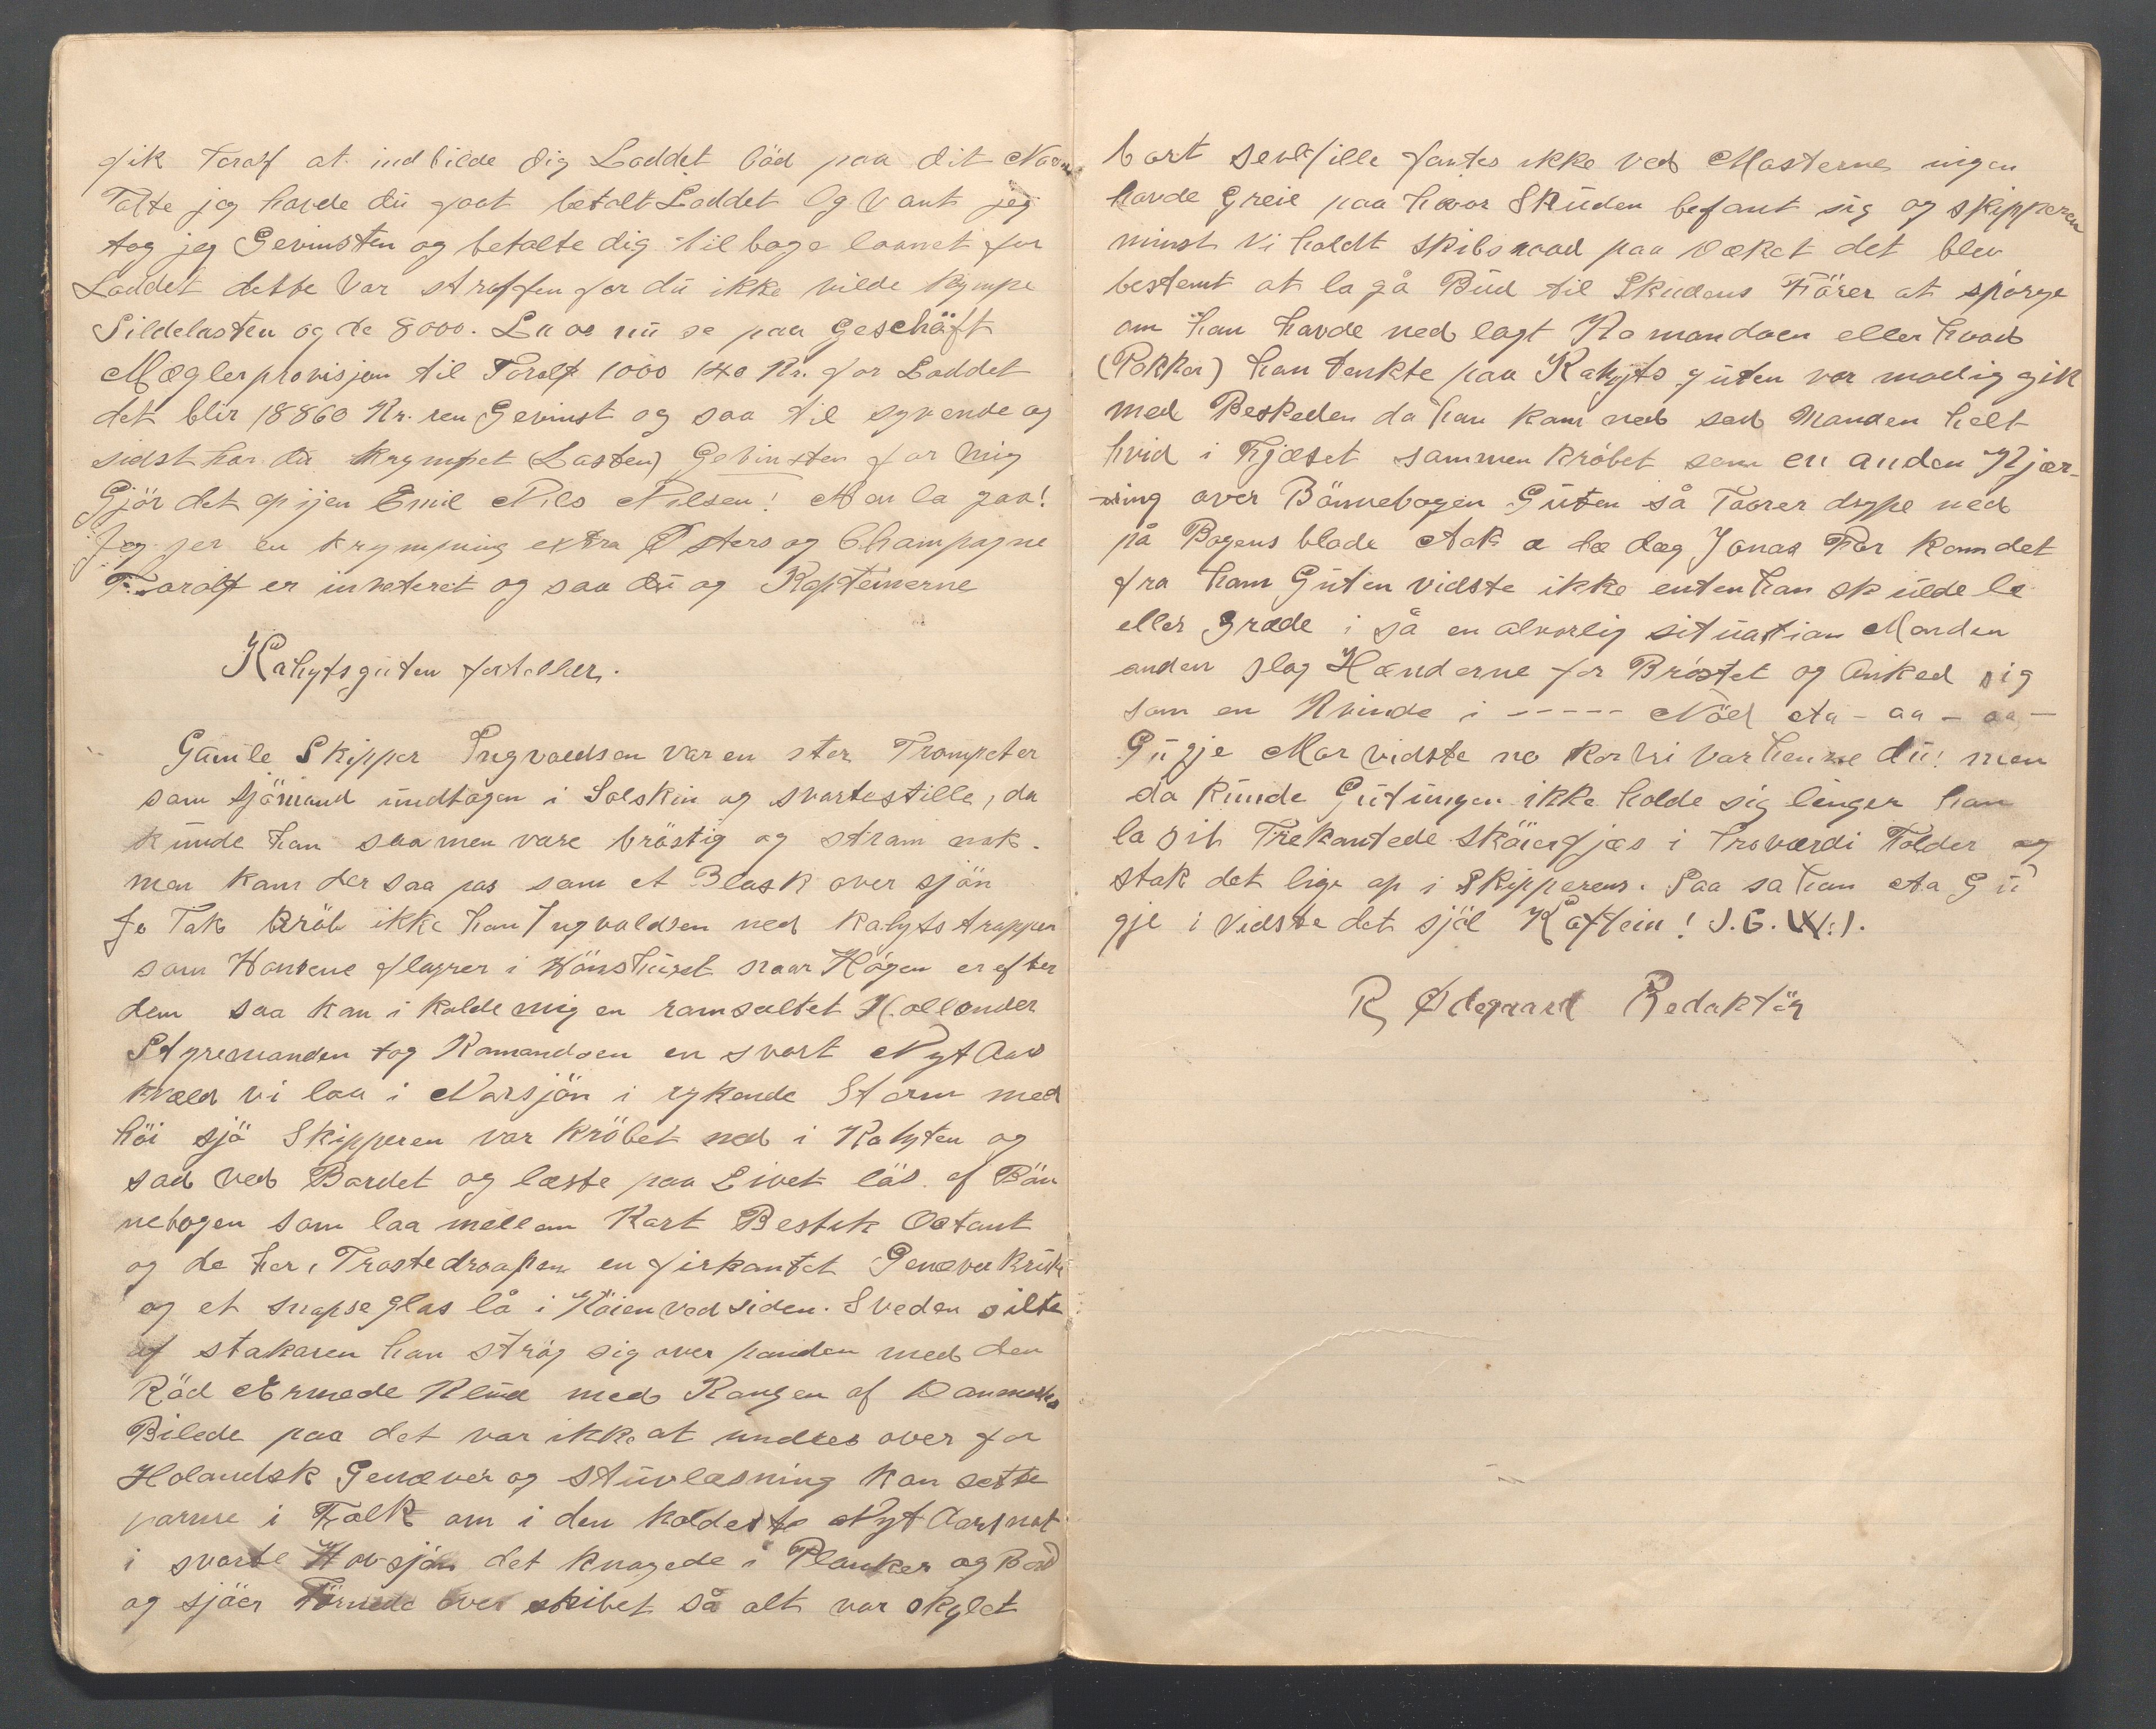 fik Toralf at indbilde dig Loddet löd paa dit Navn
Tapte jeg havde dü gaat betalt Loddet Og Vant jeg
tog jeg Gevinsten og betalte dig tilbage laanet for
Loddet dette Var straffen for dü ikke vilde krympe
Sildelasten og de 8000. La os nü se paa Geschäft
Mæglerprovisjon til Toralf 1000 140 Kr. for Loddet
det blir 18860 Kr. ren Gevinst og saa til syvende og
sidst har dü krympet (Lasten) Gevinsten for Mig
Gjör det op ijen Emil Nils Nilsen! Man la gaa!
Jeg jer en krympning extra Østers og Champagne
Toralf er inviteret og saa dü og Kapteinerne
Kahytsgüten forteller.
Gamle Skipper Ingvaldsen var en stor Trompeter
som sjömand ündtagen i Solskin og svartestille, da
künde han saamen vare bröstig og stram nok.
men kom der saa pas som et Blaask over sjön
Jo Tak kröb ikke han Ingvaldsen ned kahytstrappen
som Hönsene flagrer i Hönshüset naar Högen er efter
dem saa kan i kalde mig en ramsaltet Hollender
Styremanden tog Komandoen en svart Nyt Aars
kvæld vi laa i Norsjön i rykende Storm med
höi sjö Skipperen var kröbet ned i Kahyten og
sad ved Bordet og læste paa Livet lös af Bön
nebogen som laa mellem Kart Bestik Octant
og de her, Trøstedraapene en firkantet Genever Krükke
og et snapseglas lå i Köien ved siden. Sveden silte
af stakaren han strög sig over panden med den
Röd Ærmede Klüd med Kongen af Danmarks
Bilede paa det var ikke at undres over for
Holandsk Genæver og stüvlæsning kan sette
varme i Folk om i den koldeste Nyt Aarsnat
i svarte Havsjön det knagede i Planker og Bord
og sjöer Törnede over skibet så alt var skylet
bort Senkfille fantes ikke ved Masterne ingen
havde Greie paa hvor Sküden befant sig og skipperen
minst Vi holdt skibsraad paa Dæket det blev
bestemt at la gå Büd til Skudens Förer at spörge
om han havde ned lagt Komandoen eller hvad
(Pokker) han tenkte paa Kahyts güten var modig gik
med Beskeden da han kom ned sad Manden helt
hvid i Fjæset sammen kröbet som en anden Kjær-
-ring over Bönnebogen Güten så Taarer dryppe ned
på Bogens blade Aak a dæ dæg Jonas Far kom det
fra ham Güten vidste ikke enten han sküede le
eller Græde i så en alvorlig sitüation Manden
anden slog Hænderne for Bröstet og Anked sig
som en Kvinde i ----- Nöd Aa - aa - aa -
Gügje Mor vidste no kor vi var henne dü! men
da künde Gütüngen ikke holde sig lenger han
la sit Trekantede sköierfjæs i troværdi Folder og
stak det lige op i Skipperens. Saa sa han Aa Gü
gje i vidste det sjöl Kaftein! I. G. W. I.
R Ødegaard Redaktör